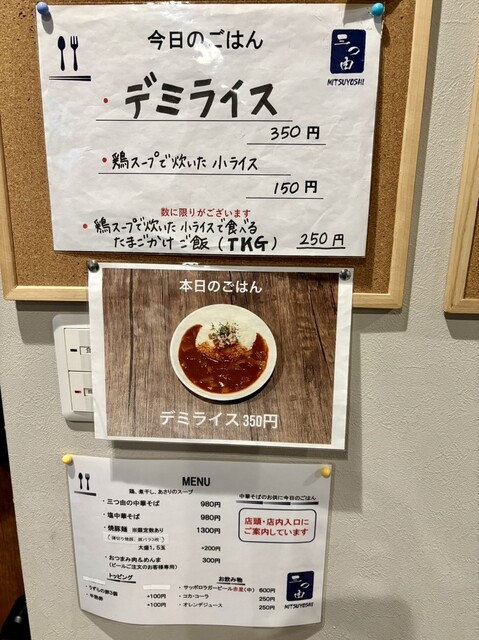 今日のごはん
三つ由
MITSUYOSHI
・デミライス
350円
・鶏スープで炊いた 小ライス
150円
数に限りがございます
・鶏スープで炊いた 小ライスで食べる
たまごかけ ご飯 (TKG) 250円
本日のごはん
デミライス350円
MENU
鶏、煮干し、あさりのスープ
・三つ由の中華そば 980円
・塩中華そば 980円
・焼豚麺 ※限定数あり 1300円
大盛1,5玉 +200円
・おつまみ肉&めんま 300円
(ビールご注文のお客様専用)
中華そばのお供に今日のごはん
店頭・店内入口に
ご案内しています
トッピング
・うずらの卵3個 +100円
+100円
お飲み物
・サッポロラガービール赤星(中) 600円
・コカ・コーラ 250円
・オレンジジュース 250円
三つ由
MITSUYOSHI